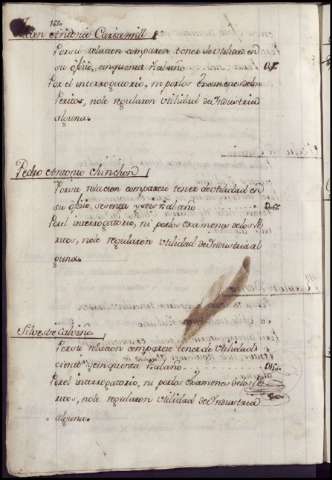 Juan Antonio
Por su relacion comparece tener de utilidad en
su ofizio, cinquenta rs al año
Por el interrogatorio, ni por los examenes de los
Peritos, no le regularon Utilidad de Industria
alguna
Pedro Antonio Chinchon
Por su relacion comparecio tener de utilidad en
su ofizio, setenta y rs al año
Por el interrogatorio, ni por los examenes de los Pe
ritos, no le regularon Utilidad de Industria al
guna
Silvestre
Por su relacion comparece tener de utilidad
ciento y cinquenta rs al año
Por el interrogatorio, ni por los examenes de los Pe
ritos, no le regularon Utilidad de Industria
alguna